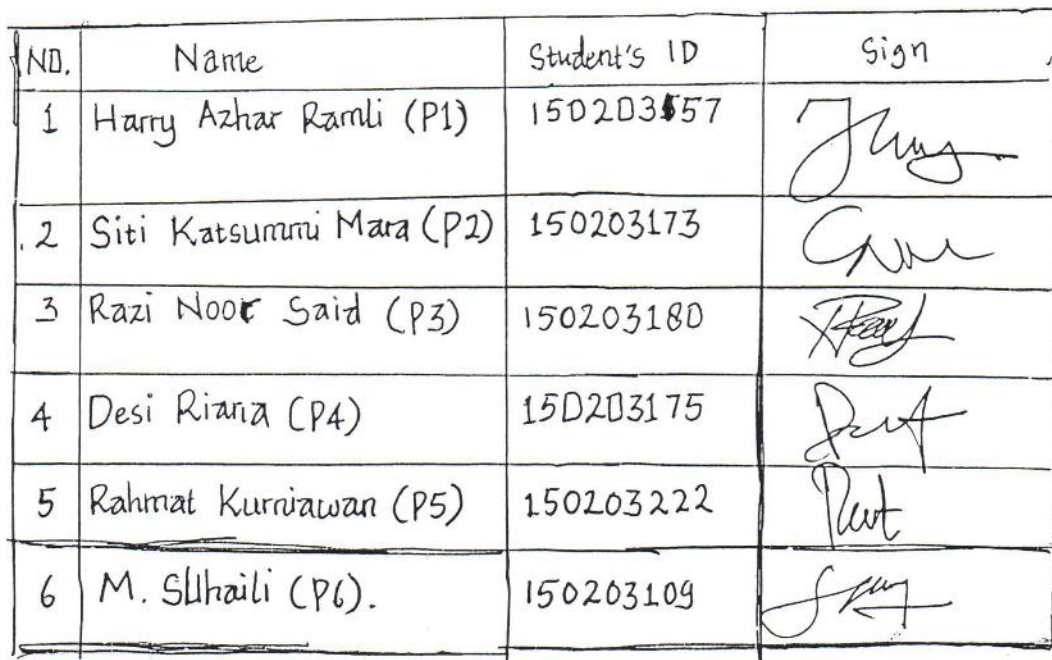 NO. Name Student's ID Sign
1 Harry Azhar Ramli (P1) 150203157
2 Siti Katsummi Mara (P2) 150203173
3 Razi Noor Said (P3) 150203180
4 Desi Riana (P4) 150203175
5 Rahmat Kurniawan (P5) 150203222
6 M. Suhaili (P6). 150203109